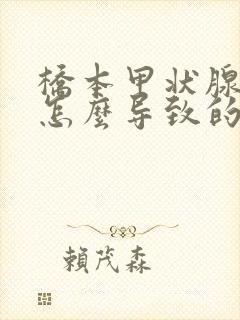 橋本甲状腺
怎麼导致的
賴茂森